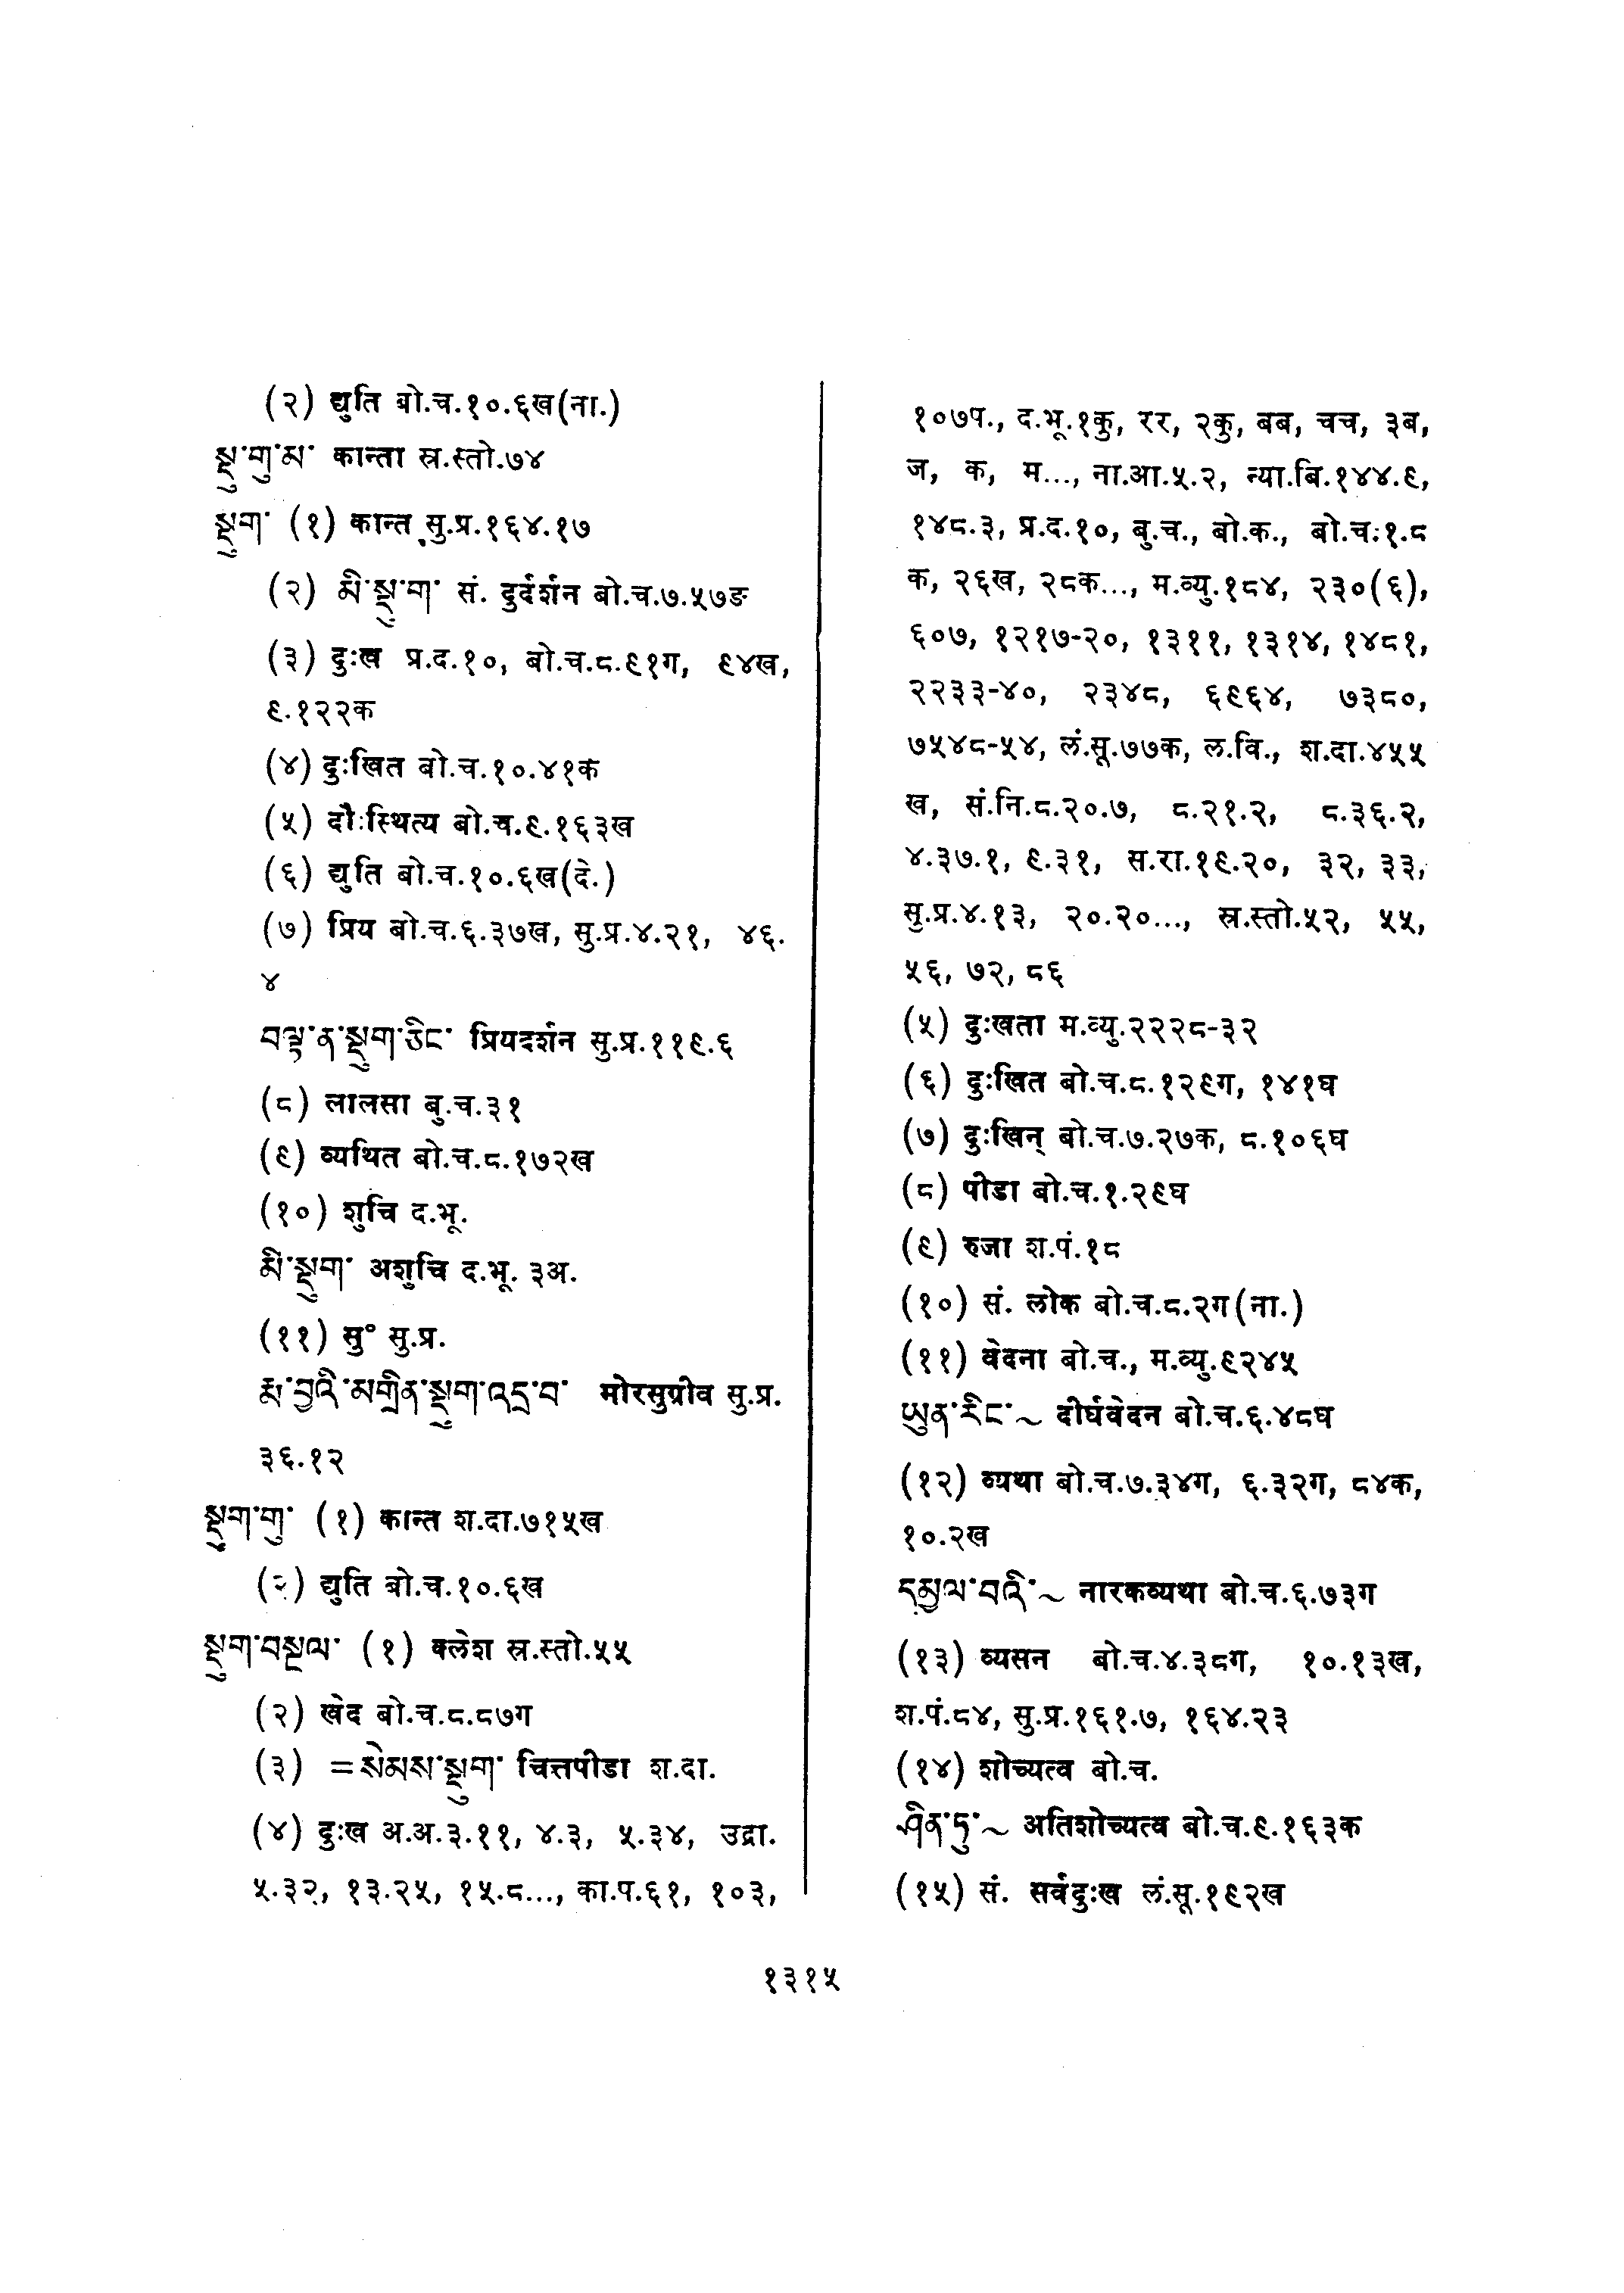 (२) द्युति बो.च.१०.६ख(ना.)
སྡུ་གུ་མ་ कान्ता स्र.स्तो.७४
སྡུག་ (१) कान्त सु.प्र.१६४.१७
(२) མི་སྡུ་ག་ सं. दुर्दर्शन बो.च.७.५७ङ
(३) दुःख प्र.द.१०, बो.च.८.९१ग, ९४ख,
९.१२२क
(४) दुःखित बो.च.१०.४१क
(५) दौःस्थित्य बो.च.९.१६३ख
(६) द्युति बो.च.१०.६ख(दे.)
(७) प्रिय बो.च.६.३७ख, सु.प्र.४.२१, ४६.
४
བལྟ་ན་སྡུག་ཅིང་ प्रियदर्शन सु.प्र.११९.६
(८) लालसा बु.च.३१
(९) व्यथित बो.च.८.१७२ख
(१०) शुचि द.भू.
མི་སྡུག་ अशुचि द.भू. ३अ.
(११) सु° सु.प्र.
རྨ་བྱའི་མགྲིན་སྡུག་འདྲ་བ་ मोरसुग्रीव सु.प्र.
३६.१२
སྡུག་གུ་ (१) कान्त श.दा.७१५ख
(२) द्युति बो.च.१०.६ख
སྡུག་བསྔལ་ (१) क्लेश स्र.स्तो.५५
(२) खेद बो.च.८.८७ग
(३) =སེམས་སྡུག་ चित्तपीडा श.दा.
(४) दुःख अ.अ.३.११, ४.३, ५.३४, उद्रा.
५.३२, १३.२५, १५.८..., का.प.६१, १०३,
१०७प., द.भू.१कु, रर, २कु, बब, चच, ३ब,
ज, क, म..., ना.आ.५.२, न्या.बि.१४४.९,
१४८.३, प्र.द.१०, बु.च., बो.क., बो.च.१.८
क, २६ख, २८क..., म.व्यु.१८४, २३०(६),
६०७, १२१७-२०, १३११, १३१४, १४८१,
२२३३-४०, २३४८, ६९६४, ७३८०,
७५४८-५४, लं.सू.७७क, ल.वि., श.दा.४५५
ख, सं.नि.८.२०.७, ८.२१.२, ८.३६.२,
४.३७.१, ९.३१, स.रा.१९.२०, ३२, ३३,
सु.प्र.४.१३, २०.२०..., स्र.स्तो.५२, ५५,
५६, ७२, ८६
(५) दुःखता म.व्यु.२२२८-३२
(६) दुःखित बो.च.८.१२९ग, १४१घ
(७) दुःखिन् बो.च.७.२७क, ८.१०६घ
(८) पीडा बो.च.१.२९घ
(९) रुजा श.पं.१८
(१०) सं. लोक बो.च.८.२ग(ना.)
(११) वेदना बो.च., म.व्यु.९२४५
ཡུན་རིང་~ दीर्घवेदन बो.च.६.४८घ
(१२) व्यथा बो.च.७.३४ग, ६.३२ग, ८४क,
१०.२ख
དམྱལ་བའི་~ नारकव्यथा बो.च.६.७३ग
(१३) व्यसन बो.च.४.३८ग, १०.१३ख,
श.पं.८४, सु.प्र.१६१.७, १६४.२३
(१४) शोच्यत्व बो.च.
ཤིན་ཏུ་~ अतिशोच्यत्व बो.च.९.१६३क
(१५) सं. सर्वदुःख लं.सू.१९२ख
१३१५